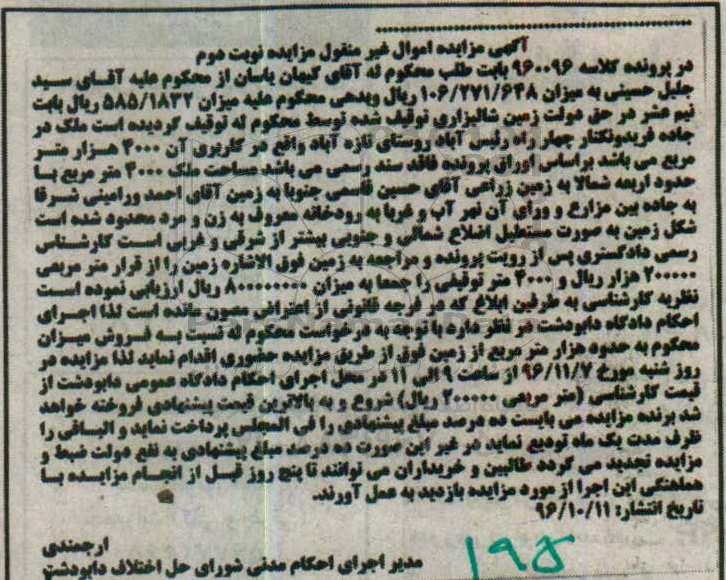 آگهی مزایده اموال غیر منقول مزایده نوبت دوم
در پرونده کلاسه ۹۶۰۰۹۶ بابت طلب محکوم له آقای کیهان یاسان از محکوم علیه آقـای سـید
جلیل حسینی به میزان ۱۰۶/۲۷۱/۶۴۸ ریال وبدهی محکوم علیه میزان ۵۸۵/۱۸۳۲ ریال بابت
نیم عشر در حق دولت زمین شالیزاری توقیف شده توسط محکوم له توقیف گردیده است ملک در
جاده فریدونکنار چهار راه رئیس آباد روستای تازه آباد واقع در کاربری آن ۴۰۰۰ هـزار متـر
مربع می باشد براساس اوراق پرونده فاقد سند رسمی می باشد مساحت ملک ۴۰۰۰ متر مربع بـا
حدود اربعه شمالا به زمین زراعی آقای حسین قاسمی جنوبا به زمین آقای احمد ورامینی شـرقا
به جاده بین مزارع و ورای آن نهر آب و غربا به رودخانه معروف به زن و مرد محدود شده است
شکل زمین به صورت مستطیل اضلاع شمالی و جنوبی بیشتر از شرقی و غربی اسـت کارشـناس
رسمی دادگستری پس از رویت پرونده و مراجعه به زمین فوق الاشاره زمین را از قرار متر مربعی
۲۰۰۰۰۰ هزار ریال و ۴۰۰۰ متر توقیفی را جمعا به میزان ۸۰۰۰۰۰۰۰۰ ریال ارزیابی نموده اسـت
نظریه کارشناسی به طرفین ابلاغ که در فرجه قانونی از اعتراض مصون مانده است لذا اجـرای
احکام دادگاه دابودشت در نظر دارد با توجه به درخواست محکوم له نسبت بـه فـروش میـزان
محکوم به حدود هزار متر مربع از زمین فوق از طریق مزایده حضوری اقدام نماید لذا مزایده در
روز شنبه مورخ ۹۶/۱۱/۷ از ساعت ۹ الی ۱۱ در محل اجرای احکام دادگاه عمومی دابودشت از
قیمت کارشناسی (متر مربعی ۲۰۰۰۰۰ ریال) شروع و به بالاترین قیمت پیشنهادی فروخته خواهد
شد برنده مزایده می بایست ده درصد مبلغ پیشنهادی را فی المجلس پرداخت نماید و الباقی را
ظرف مدت یک ماه تودیع نماید در غیر این صورت ده درصد مبلغ پیشنهادی به نفع دولت ضبط و
مزایده تجدید می گردد طالبین و خریداران می توانند تا پنج روز قبل از انجـام مزایـده بـا
هماهنگی این اجرا از مورد مزایده بازدید به عمل آورند.
تاریخ انتشار: ۹۶/۱۰/۱۱
ارجمندی
مدیر اجرای احکام مدنی شورای حل اختلاف دابودشت
۱۹۵